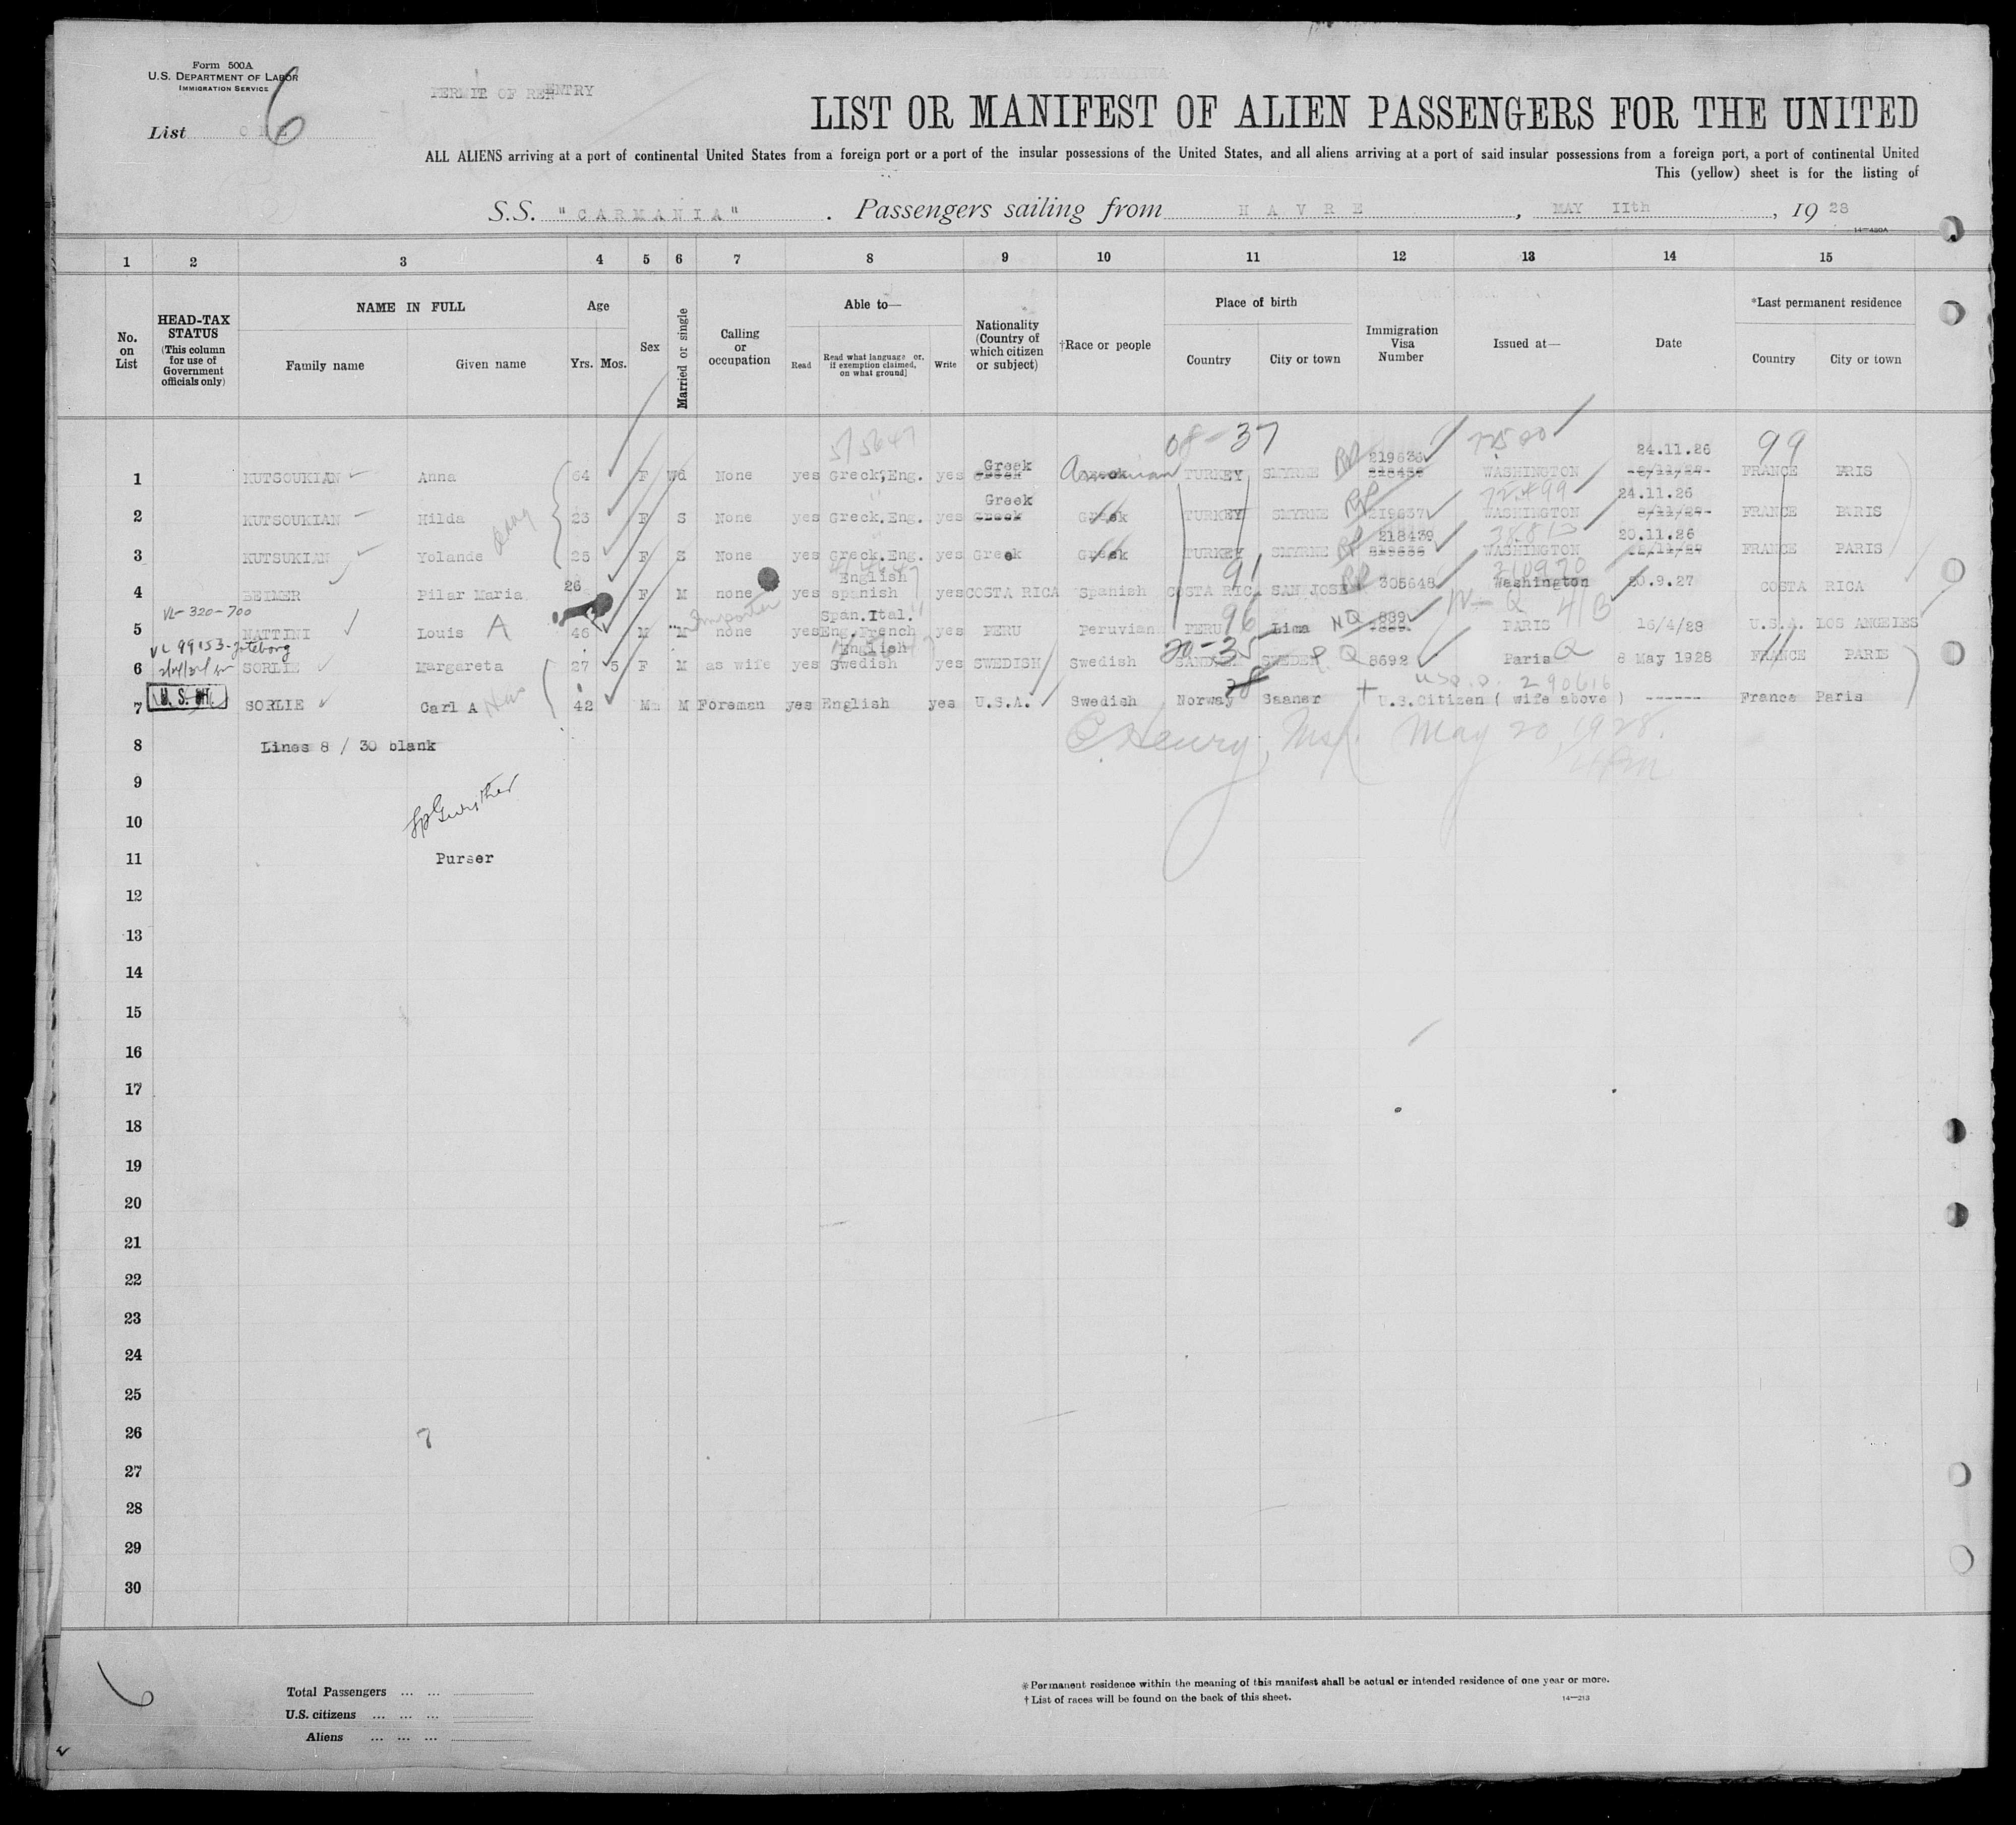 Form 500A
U.S. DEPARTMENT OF LABOR
IMMIGRATION SERVICE
List ONE
6
PERMIT OF REENTRY
LIST OR MANIFEST OF ALIEN PASSENGERS FOR THE UNITED
ALL ALIENS arriving at a port of continental United States from a foreign port or a port of the insular possessions of the United States, and all aliens arriving at a port of said insular possessions from a foreign port, a port of continental United
This (yellow) sheet is for the listing of
S.S. "CARMANIA". Passengers sailing from HAVRE, MAY IIth, 1928
14—430A
1 2 3 4 5 6 7 8 9 10 11 12 13 14 15
No. on List
HEAD-TAX STATUS (This column for use of Government officials only)
NAME IN FULL
Family name Given name
Age
Yrs. Mos.
Sex
Married or single
Calling or occupation
Able to—
Read Read what language or, if exemption claimed, on what ground] Write
Nationality (Country of which citizen or subject)
†Race or people
Place of birth
Country City or town
Immigration Visa Number
Issued at—
Date
*Last permanent residence
Country City or town
08-37 99
219636 24.11.26
1 KUTSOUKIAN Anna 64 F Wd None yes Greck,Eng. yes Greek Armenian TURKEY SMYRNE RP WASHINGTON FRANCE PARIS
Greek 24.11.26
2 KUTSOUKIAN Hilda 23 F S None yes Greck.Eng. yes Greek TURKEY SMYRNE RP 219637 WASHINGTON FRANCE PARIS
218439 20.11.26
3 KUTSUKIAN Yolande 25 F S None yes Greck.Eng. yes Greek Greek TURKEY SMYRNE RP WASHINGTON FRANCE PARIS
26 English 91 210970
4 BEIMER Pilar Maria F M none yes spanish yes COSTA RICA Spanish COSTA RICA SAN JOSE RP 305648 Washington 20.9.27 COSTA RICA
VL-320-700 Importer Span.Ital. 96 NQ 889
5 NATTINI Louis A 46 M M none yes Eng.French yes PERU Peruvian PERU Lima PARIS 16/4/28 U.S.A. LOS ANGELES
VL 99153-Goteborg English 20-35
6 SORLIE Margareta 27 5 F M as wife yes Swedish yes SWEDISH Swedish SWEDEN Q 8692 Paris Q 8 May 1928 FRANCE PARIS
U.S. 28 U.S.P.P. 290616
7 SORLIE Carl A 42 Mm M Foreman yes English yes U.S.A. Swedish Norway Saaner U.S.Citizen ( wife above ) ------ France Paris
8 Lines 8 / 30 blank
C Henry, Insp. May 20, 1928.
4 Pm
9
10
11 Purser
12
13
14
15
16
17
18
19
20
21
22
23
24
25
26 7
27
28
29
30
6
Total Passengers ... ...
U.S. citizens ... ... ...
Aliens ... ... ...
*Permanent residence within the meaning of this manifest shall be actual or intended residence of one year or more.
† List of races will be found on the back of this sheet.
14—213